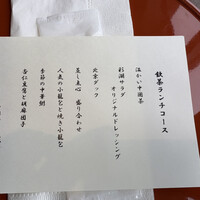 飲茶ランチコース
温かい中国茶
彩湖サラダ
オリジナルドレッシング
北京ダック
蒸し点心 盛り合わせ
人気の小籠包と焼き小籠包
季節の中華粥
杏仁豆腐と胡麻団子